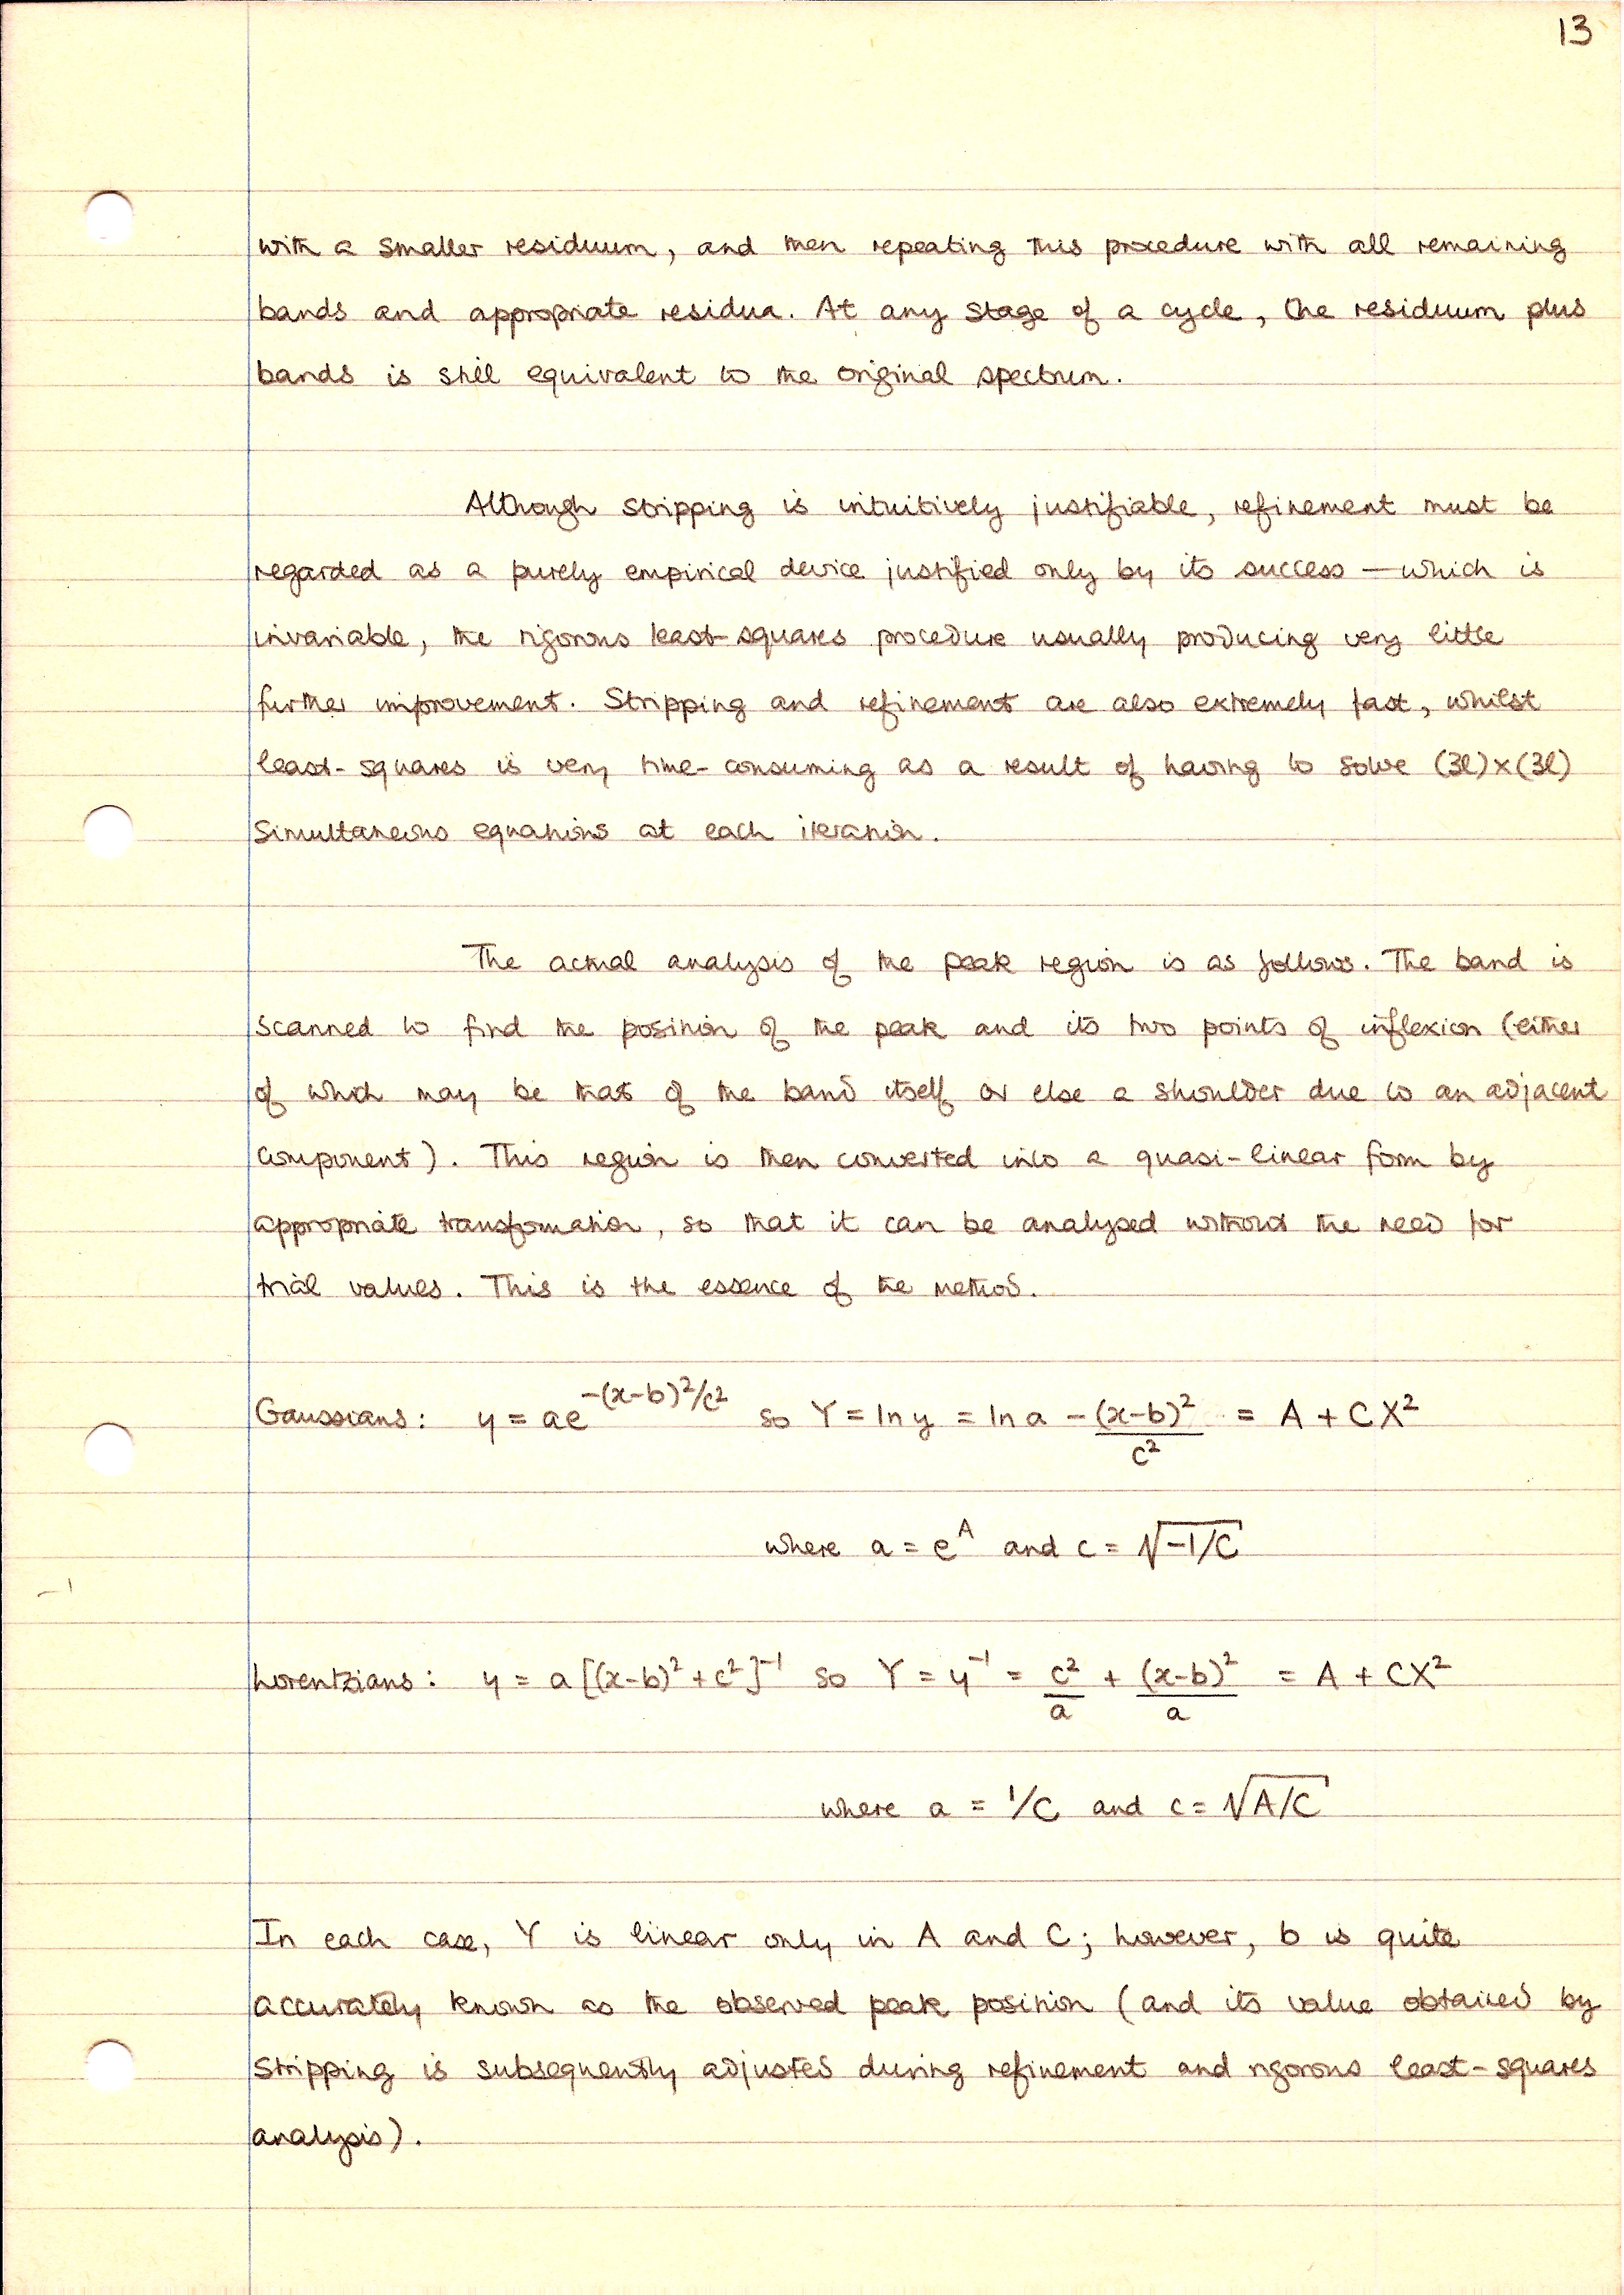 13
with a smaller residuum, and then repeating this procedure with all remaining
bands and appropriate residua. At any stage of a cycle, the residuum plus
bands is still equivalent to the original spectrum.
Although stripping is intuitively justifiable, refinement must be
regarded as a purely empirical device justified only by its success — which is
invariable, the rigorous least-squares procedure usually producing very little
further improvement. Stripping and refinement are also extremely fast, whilst
least-squares is very time-consuming as a result of having to solve (3l)×(3l)
simultaneous equations at each iteration.
The actual analysis of the peak region is as follows. The band is
scanned to find the position of the peak and its two points of inflexion (either
of which may be that of the band itself or else a shoulder due to an adjacent
component). This region is then converted into a quasi-linear form by
appropriate transformation, so that it can be analysed without the need for
trial values. This is the essence of the method.
Gaussians: y = ae^{-(x-b)²/c²} so Y = ln y = ln a - (x-b)²/c² = A + CX²
where a = e^A and c = √(-1/C)
Lorentzians: y = a[(x-b)² + c²]⁻¹ so Y = y⁻¹ = c²/a + (x-b)²/a = A + CX²
where a = 1/C and c = √(A/C)
In each case, Y is linear only in A and C; however, b is quite
accurately known as the observed peak position (and its value obtained by
stripping is subsequently adjusted during refinement and rigorous least-squares
analysis).